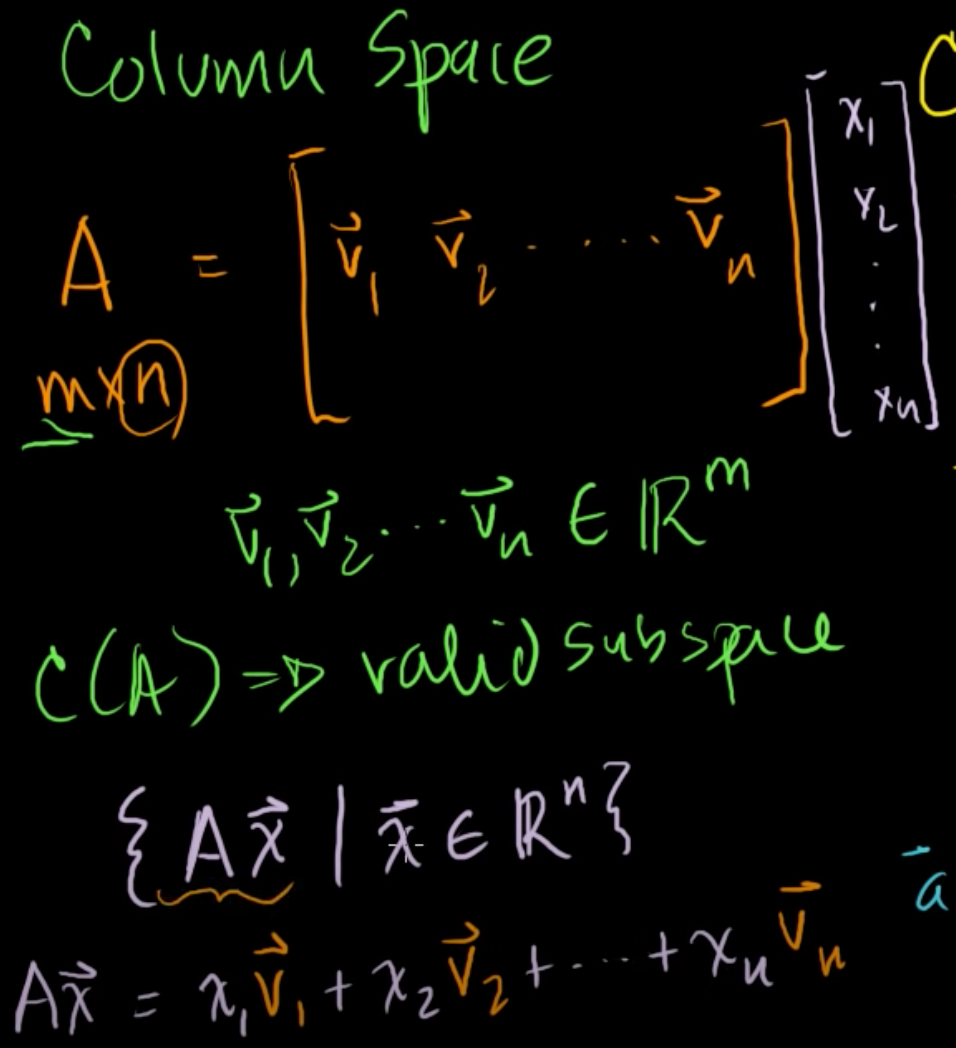 Column Space
A = [ v⃗₁ v⃗₂ ..... v⃗ₙ ] [ x₁ x₂ . . . xₙ ]
m×n
v⃗₁, v⃗₂ ... v⃗ₙ ∈ ℝᵐ
C(A) => valid subspace
{ Ax⃗ | x⃗ ∈ ℝⁿ }
a⃗
Ax⃗ = x₁v⃗₁ + x₂v⃗₂ + ... + xₙv⃗ₙ